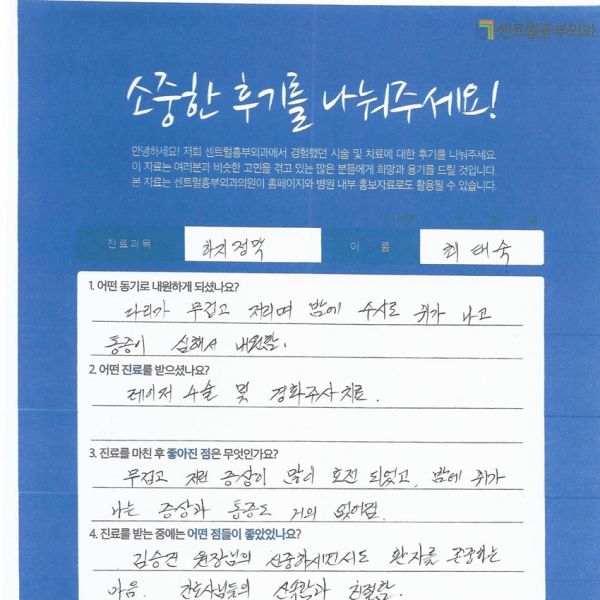 센트럴흉부외과
소중한 후기를 나눠주세요!
안녕하세요! 저희 센트럴흉부외과에서 경험했던 시술 및 치료에 대한 후기를 나눠주세요
이 자료는 여러분과 비슷한 고민을 겪고 있는 많은 분들에게 희망과 용기를 드릴 것입니다.
본 자료는 센트럴흉부외과의원이 홈페이지와 병원 내부 홍보자료로도 활용될 수 있습니다.
진료과목 하지정맥 이 름 최태숙
1. 어떤 동기로 내원하게 되셨나요?
다리가 무겁고 저리며 밤에 수시로 쥐가 나고
통증이 심해서 내원함.
2. 어떤 진료를 받으셨나요?
레이저 수술 및 경화주사 치료.
3. 진료를 마친 후 좋아진 점은 무엇인가요?
무겁고 저린 증상이 많이 호전 되었고, 밤에 쥐가
나는 증상과 통증도 거의 없어짐
4. 진료를 받는 중에는 어떤 점들이 좋았었나요?
김승진 원장님의 신중하시면서도 환자를 존중하는
마음. 간호사님들의 신속함과 친절함.